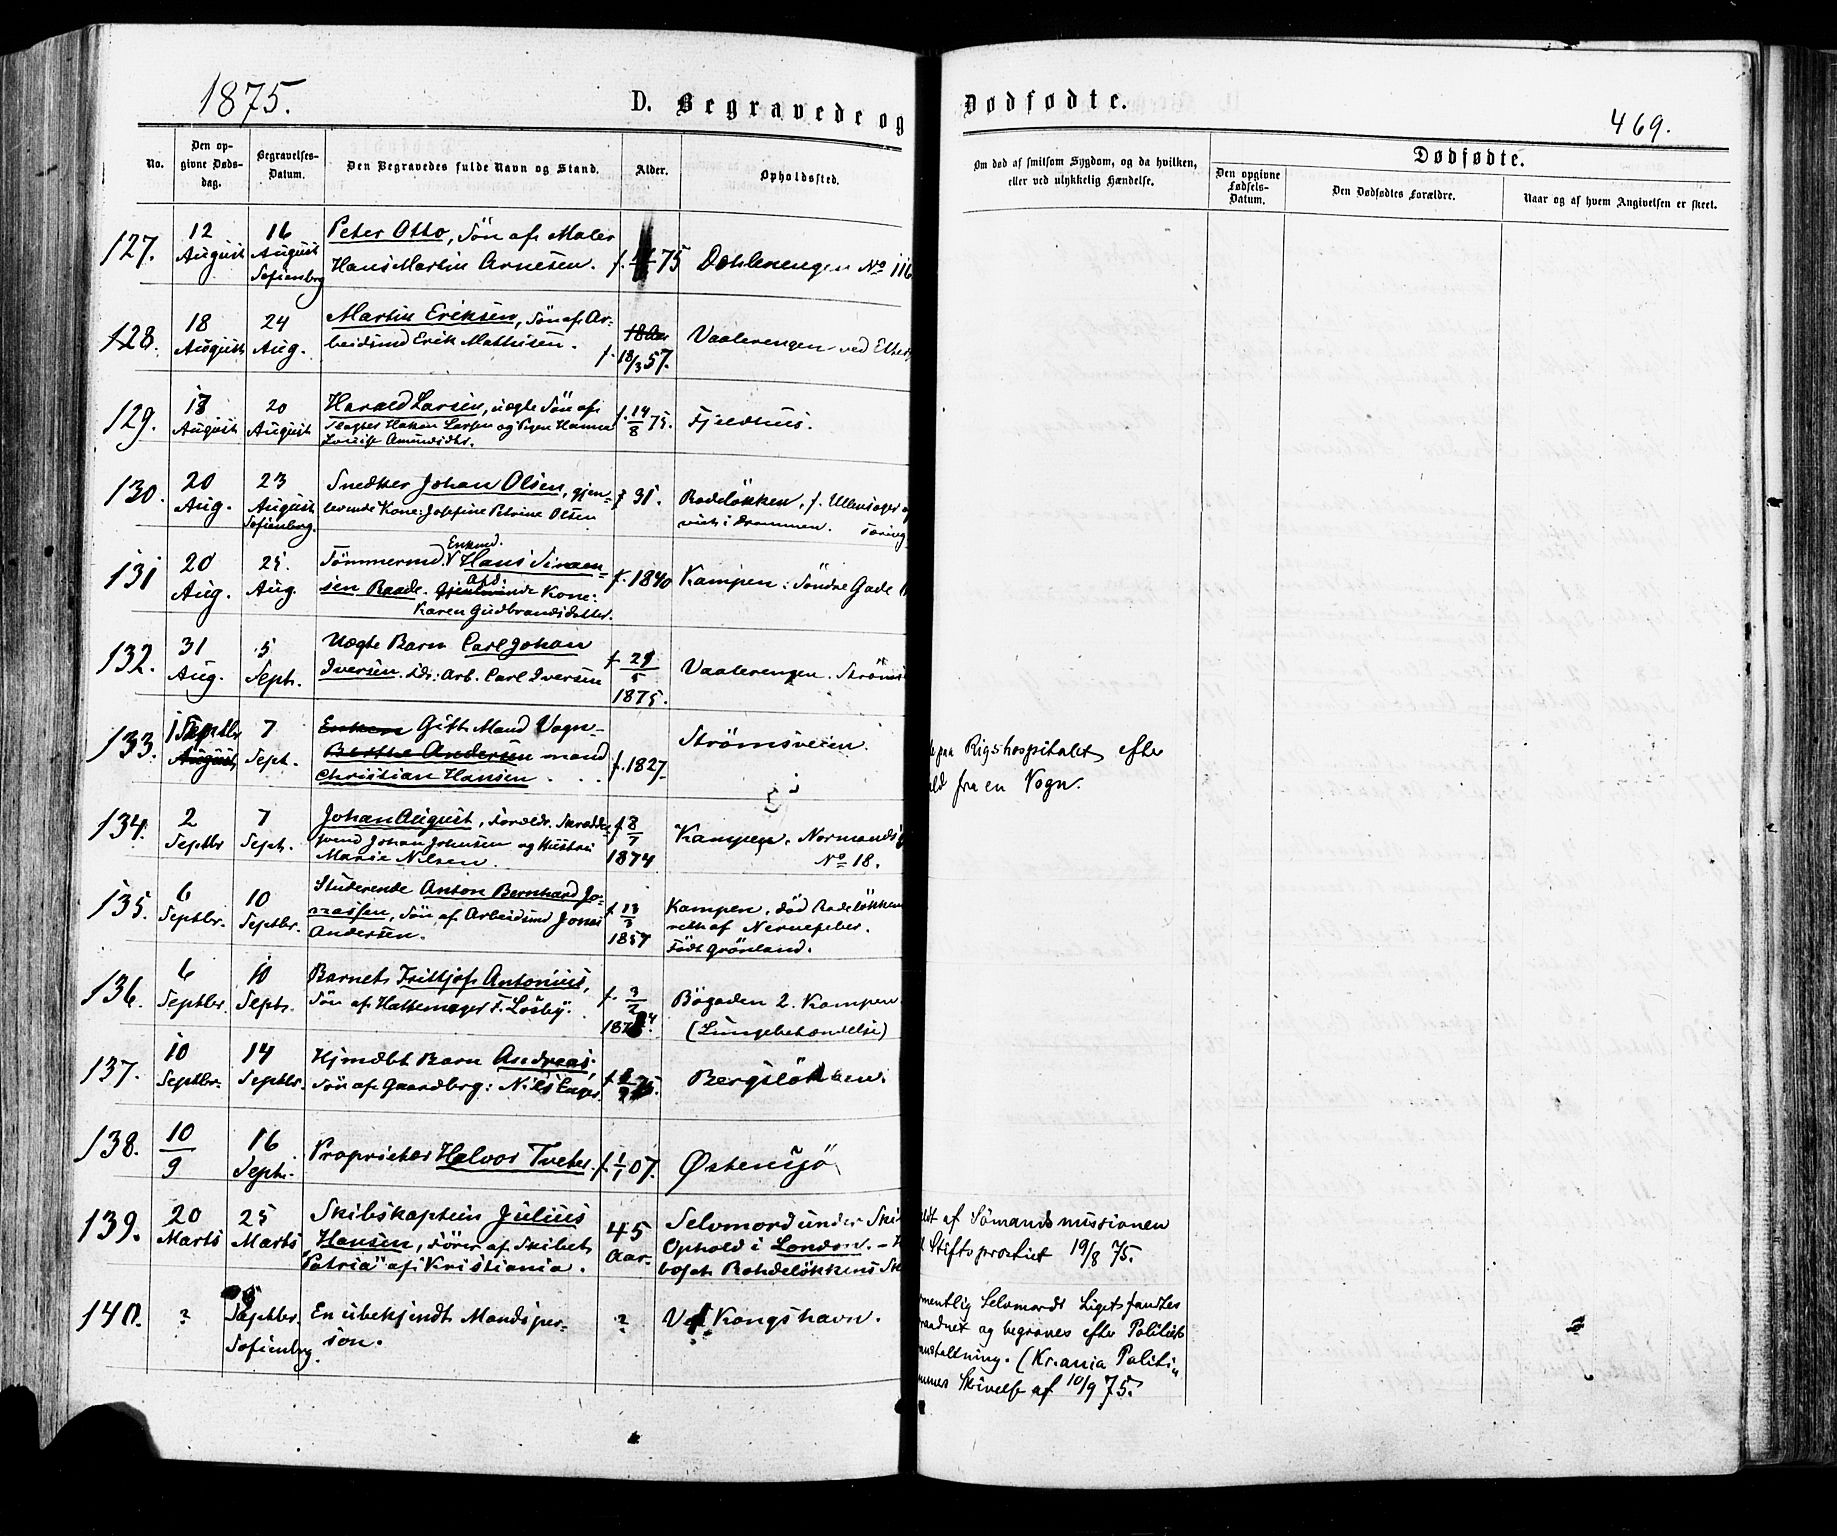 1875.
D. Begravede og Dødfødte.
469.
No.
Den opgivne Dødsdag.
Begravelses-Datum.
Den Begravedes fulde Navn og Stand.
Alder.
Opholdssted.
Om død af smitsom Sygdom, og da hvilken,
eller ved ulykkelig Hændelse.
Dødfødte.
Den opgivne Fødsels-Datum.
Den Dødfødtes Forældre.
Naar og af hvem Angivelsen er skeet.
127.
12 August
16 August Sofienberg
Peter Otto, Søn af Maler
Hans Martin Arnesen.
75
Dählenengen No 116
128.
18 August
24 Aug.
Martin Eriksen, Søn af Ar-
beidsmd Erik Mathisen.
18 Aar
f. 18/3 57.
Vaalerengen ved
129.
18 August
20 August
Harald Larsen, uægte Søn af
Hakon Larsen og Pigen Hanna
Louise Amundsdtr.
f. 14/8 75.
Fjeldhus.
130.
20 Aug.
23 August Sofienberg.
Snedker Johan Olsen, gjen-
levende Kone: Josefine Petrine Olsen
f 31.
Rodeløkken, f. Ullensager
viet i Drammen.
131
20 Aug.
25. Aug.
Tømmermd. Enkemd. Hans Simen-
sen Raade. Gjenlevende afd. Kone:
Karen Gudbrandsdatter.
f. 1840
Kampen: Søndre Gade
132.
31 Aug.
5 Sept.
Uægte Barn Carl Johan
Iversen. Fdr: Arb. Carl Iversen
f 29/5 1875.
Vaalerengen.
133.
1 Septbr August
7 Sept.
Enken Gift Mand Vogn-
Berthe Andersen mand
Christian Hansen.
f. 1827.
Strømsveien.
paa Rigshospitalet efter
fra en Vogn.
134.
2 Septbr
7 Sept.
Johan August, Forældr. Skrædder-
svend Johan Johnsen og Hustru
Marie Nilsen.
f 8/7 1874
Kampen, Normands
No 18.
135.
6 Septbr.
10 Septbr.
Studerende Anton Bernhard Jo-
nassen, Søn af Arbeidsmd Jonas
Andersen.
f 13/3 1857
Kampen, død Rodeløkken
af Nervefeber.
Født Grønland.
136.
6 Septbr.
10 Septr.
Barnet Fritjof Antonius,
Søn af Hattemager F. Løsby.
f. 3/2
Bøgaden 2. Kampen
(Lungebetændelse)
137.
10 Septbr.
14 Septbr.
Hjmdbt Barn Andreas,
Søn af Gaardbrg: Nils
75.
Bergsløkken.
138.
10/9
16 Septr.
Proprietær Halvor Tveter.
f. 1/1 07.
Østensjø
139.
20 Marts
25 Marts
Skibskaptein Julius
Hansen, Fører af Skibet
"Patria" af Kristiania.
45 Aar
Selvmord under
Ophold i London.
bosat Rohdeløkkens
af Sømandsmissionen
Stiftsprostiet 19/8 75.
140.
?
Septbr. Sofienbrg.
En ubekjendt Mandsper-
son.
?
Ved Kongshavn.
Selvmord. Liget fandtes
og begraves efter Politiets
(Kr.ania Politi
Skrivelse af 10/9 75.